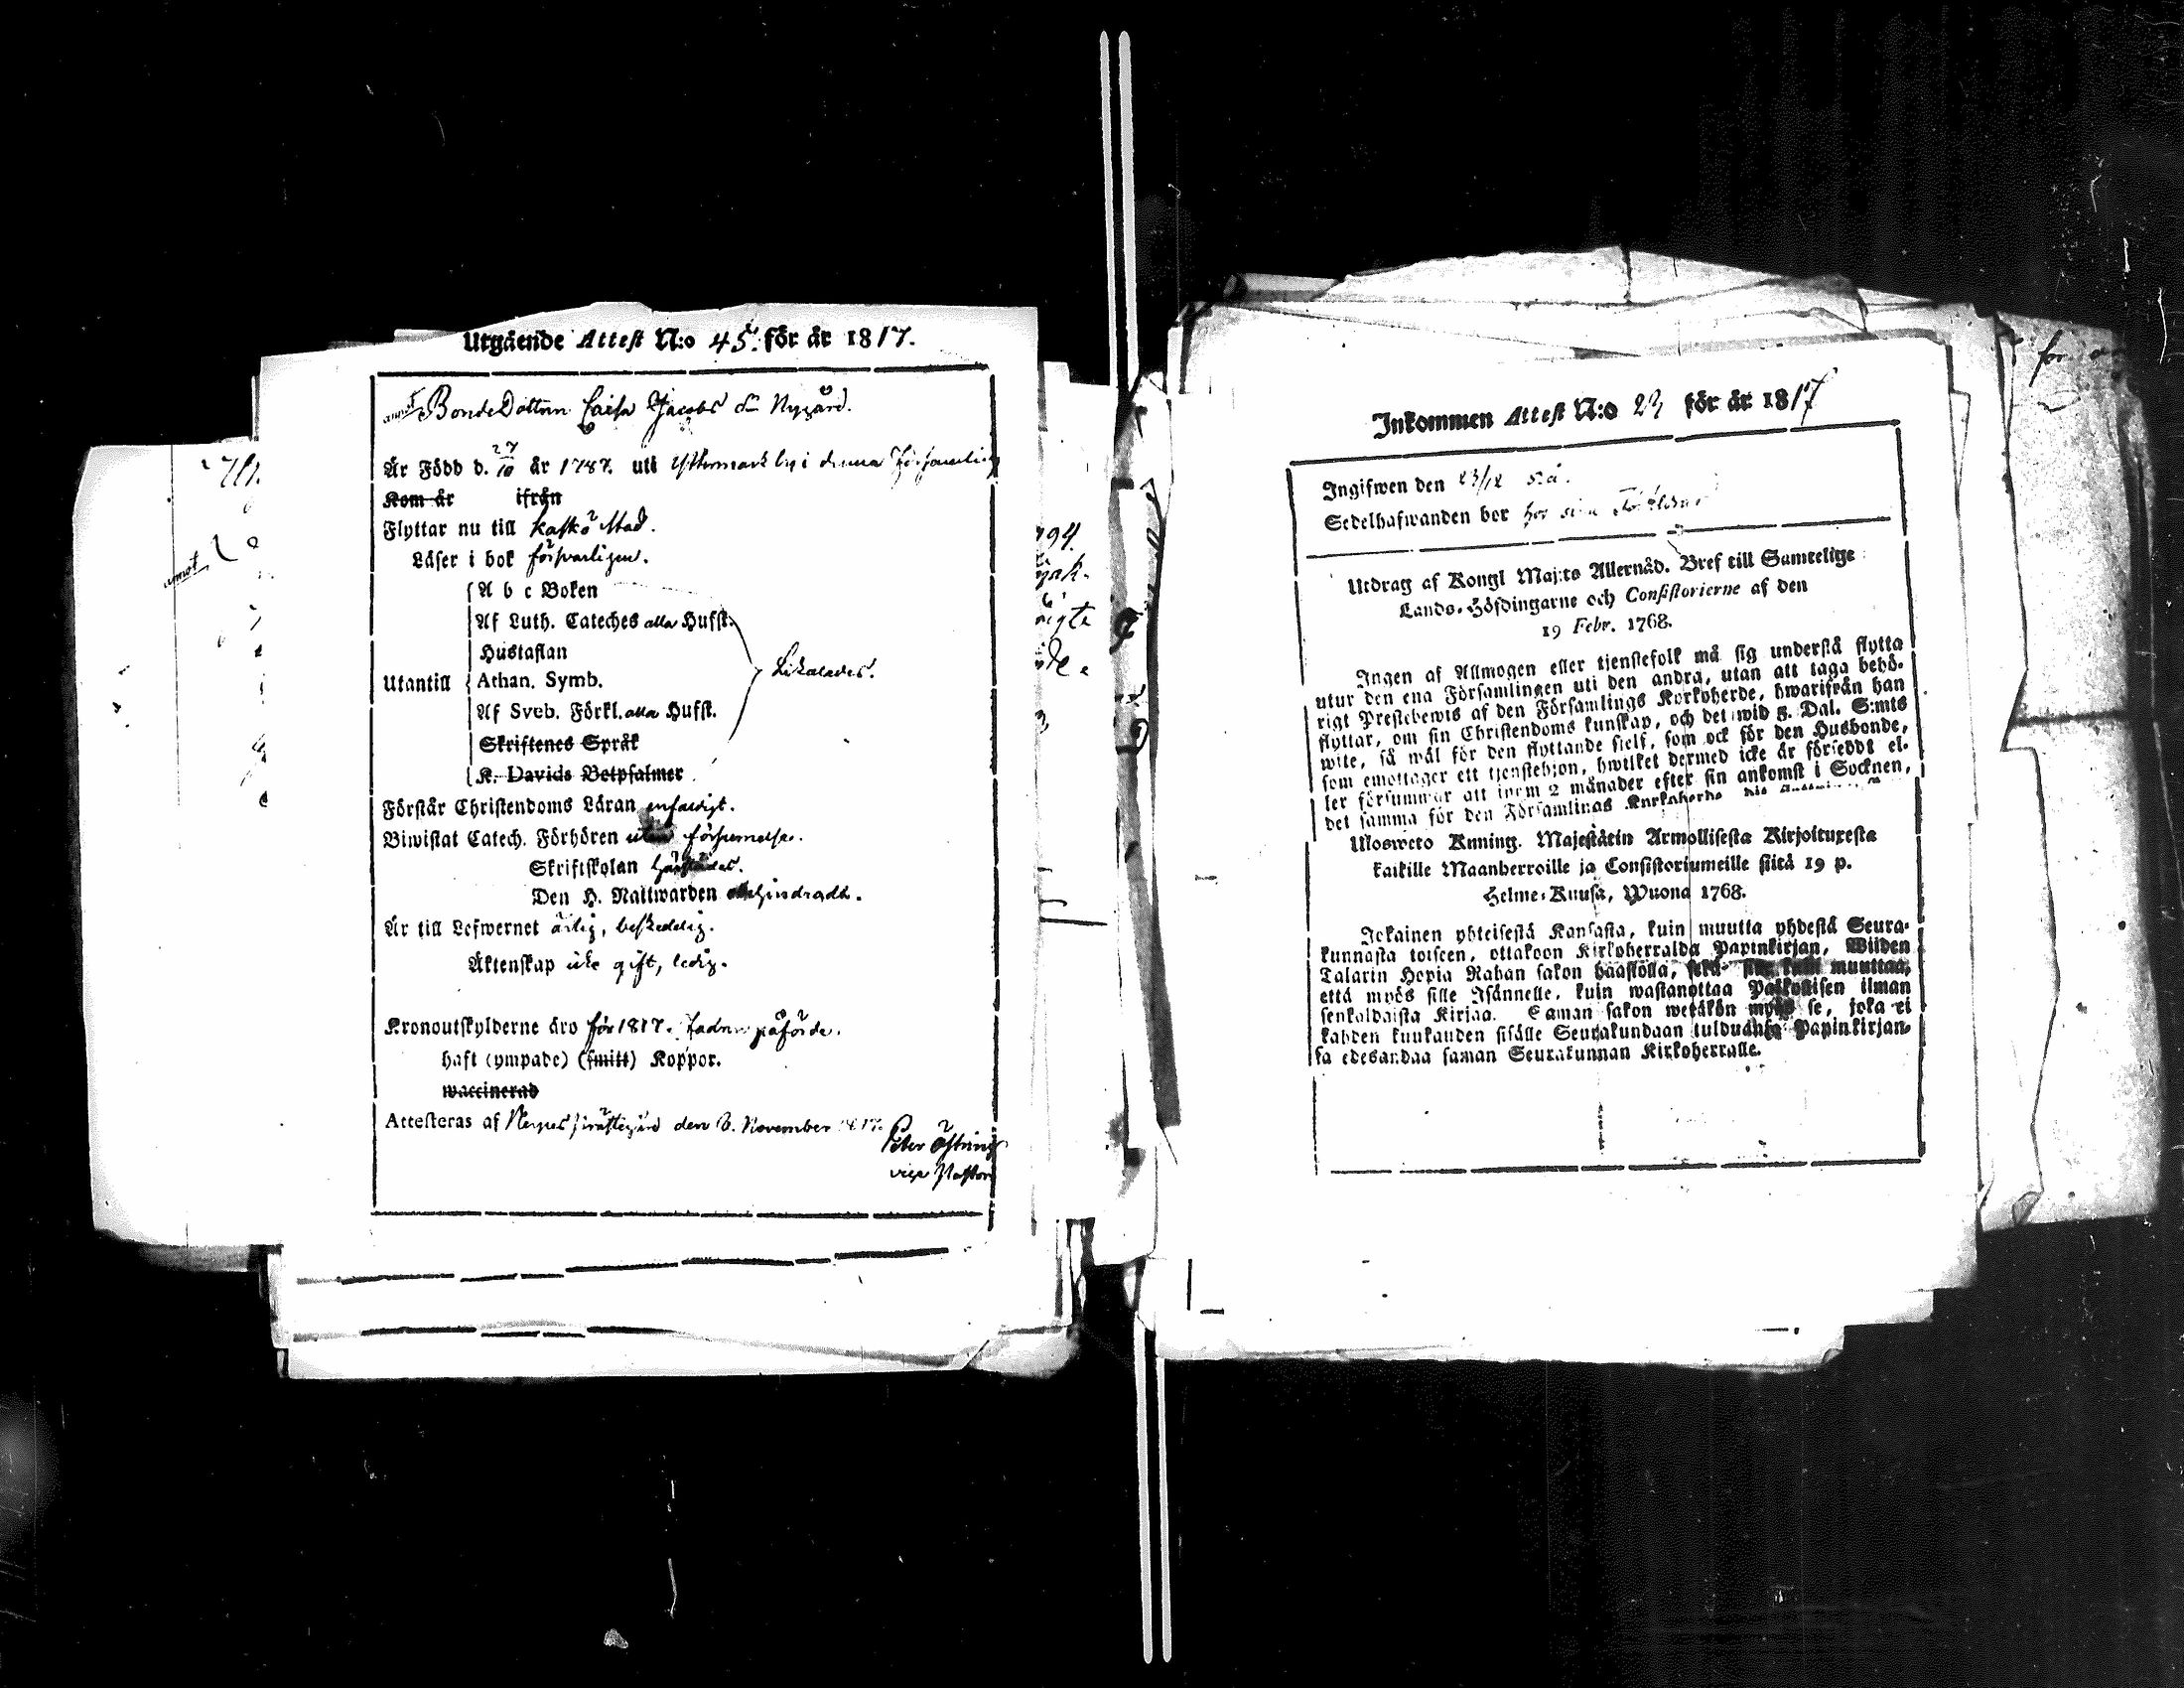 Utgående Attest N:o 45. för år 1817.
BondeDottren Caisa Jacobs dr Nygård.
Är Född d. 27/10 år 1787. uti Yttermark by i denna Församling
Kom år ifrån
Flyttar nu till Kaskö Stad.
Läser i bok försvarligen.
A b c Boken
Af Luth. Cateches alla Hufst.
Hustaflan
Utantill Athan. Symb. likaledes.
Af Sveb. Förkl. alla Hufst.
Skriftenes Språk
K. Davids Botpsalmer
Förstår Christendoms Läran enfaldigt.
Biwistat Catech. Förhören utan försummelse.
Skriftskolan härstädes.
Den H. Nattwarden ohindradt.
Är till Lefwernet ärlig, beskedelig.
Äktenskap icke gift, ledig.
Kronoutskylderne äro för 1817. påförde.
haft (ympade) (smitt) Koppor.
waccinerad
Attesteras af Nerpes prästegård den 6. November 1817.
Peter Östring
vice Pastor
Inkommen Attest N:o 23 för år 1817
Ingifwen den 23/12 s. å.
Sedelhafwanden bor hos sina Föräldrar
Utdrag af Kongl Maj:ts Allernåd. Bref till Samtelige
Lands-Höfdingarne och Consistorierne af den
19 Febr. 1768.
Ingen af Allmogen eller tjenstefolk må sig understå flytta
utur den ena Församlingen uti den andra, utan att taga behö-
rigt Prestebewis af den Församlings Kyrkoherde, hwarifrån han
flyttar, om sin Christendoms kunskap, och det wid 5. Dal. S:mts
wite, så wäl för den flyttande sielf, som ock för den Husbonde,
som emottager ett tjenstehjon, hwilket dermed icke är försedt el-
ler försummar att inom 2 månader efter sin ankomst i Socknen,
det samma för den Församlings Kyrkoherde
Ulosweto Kuning. Majestätin Armollisesta Kirjoituxesta
kaikille Maanherroille ja Consistoriumeille siitä 19 p.
Helme-Kuusa, Wuona 1768.
Jokainen yhteisestä Kansasta, kuin muutta yhdestä Seura-
kunnasta toiseen, ottakoon Kirkoherralda Papinkirjan, Wiiden
Talarin Hopia Rahan sakon haastolla, sekä sille kuin muuttaa,
että myös sille Isännelle, kuin wastanottaa Palkollisen ilman
senkaldaista Kirjaa. Saman sakon wetäkön myös se, joka ei
kahden kuukauden sisälle Seurakundaan tulduansa Papinkirjan-
sa edesandaa saman Seurakunnan Kirkoherralle.